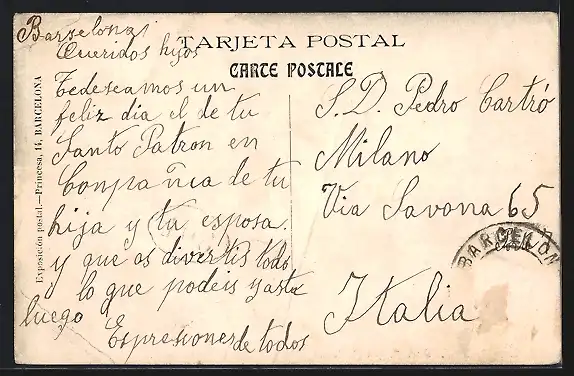 Barselona
Queridos hijos
TARJETA POSTAL
CARTE POSTALE
Tedeseamos un
feliz dia el de tu
Santo Patron en
Compañia de tu
hija y tu esposa
y que os divertis todo
lo que podeis y asta
luego
Espresiones de todos
S. D. Pedro Cartró
Milano
Via Savona 65
Italia
BARCELON
Exposición postal.—Princesa, 14, BARCELONA